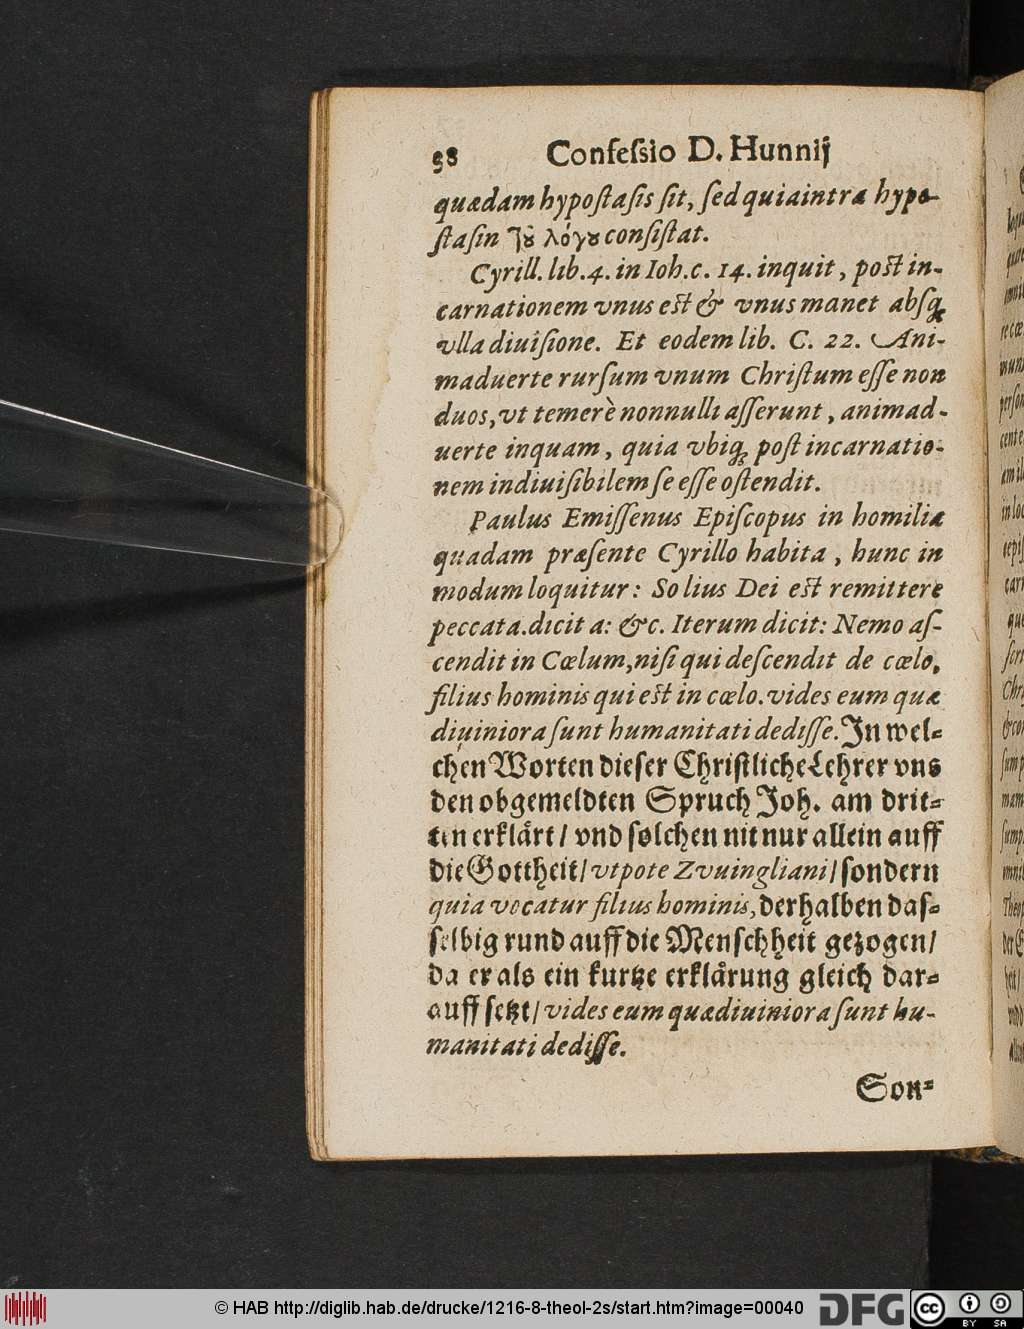 38 Confeſsio D. Hunnij
quædam hypoſtaſis ſit, ſed quia intra hypo-
ſtaſin τȣ͂ λόγȣ conſiſtat.
Cyrill. lib. 4. in Ioh. c. 14. inquit, poſt in-
carnationem vnus eſt & vnus manet abſq;
vlla diuiſione. Et eodem lib. C. 22. Ani-
maduerte rurſum vnum Chriſtum eſſe non
duos, vt temerè nonnulli aſſerunt, animad-
uerte inquam, quia vbiq; poſt incarnatio-
nem indiuiſibilem ſe eſſe oſtendit.
Paulus Emiſſenus Epiſcopus in homilia
quadam præſente Cyrillo habita, hunc in
modum loquitur: Solius Dei eſt remittere
peccata. dicit a: &c. Iterum dicit: Nemo aſ-
cendit in Cœlum, niſi qui deſcendit de cœlo,
filius hominis qui eſt in cœlo. vides eum quæ
diuiniora ſunt humanitati dediſſe. In wel-
chen Worten dieſer Chriſtliche Lehrer vns
den obgemeldten Spruch Joh. am drit-
ten erklaͤrt / vnd ſolchen nit nur allein auff
die Gottheit / vtpote Zvuingliani / ſondern
quia vocatur filius hominis, derhalben daſ-
ſelbig rund auff die Menſchheit gezogen /
da er als ein kurtze erklaͤrung gleich dar-
auff ſetzt / vides eum quæ diuiniora ſunt hu-
manitati dediſſe.
Son-
© HAB http://diglib.hab.de/drucke/1216-8-theol-2s/start.htm?image=00040 DFG cc BY SA